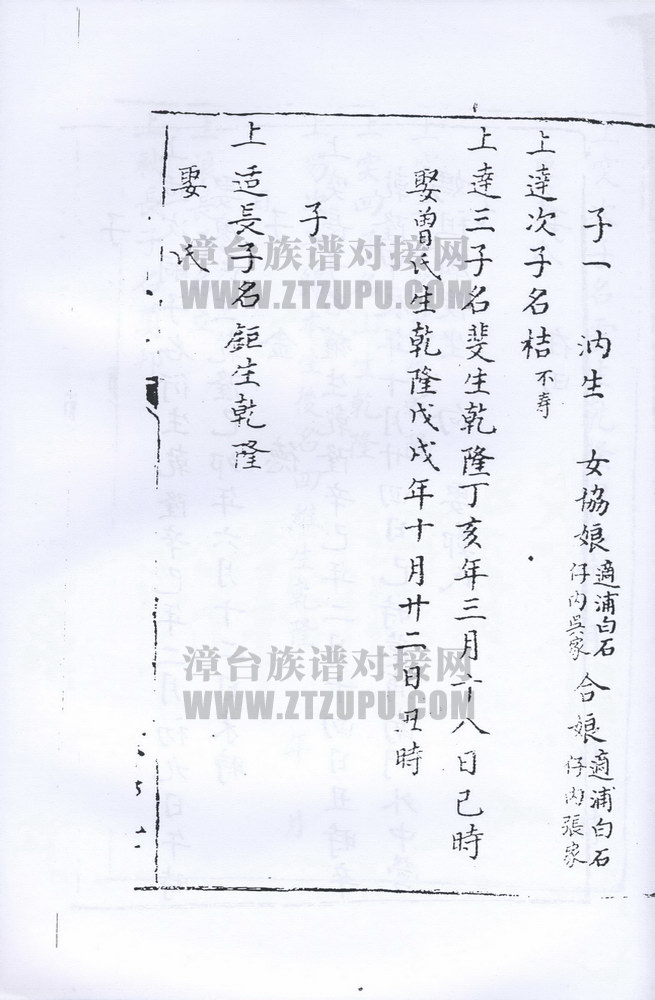 子一 汭生 女協娘適浦白石仔内吳家 合娘適浦白石仔内張家
上達次子名桔不寿
上達三子名斐生乾隆丁亥年三月十八日己時
娶曽氏生乾隆戊戌年十月廿二日丑時
子
上适長子名鉅生乾隆
娶 氏
漳台族谱对接网
WWW.ZTZUPU.COM
漳台族谱对接网
WWW.ZTZUPU.COM